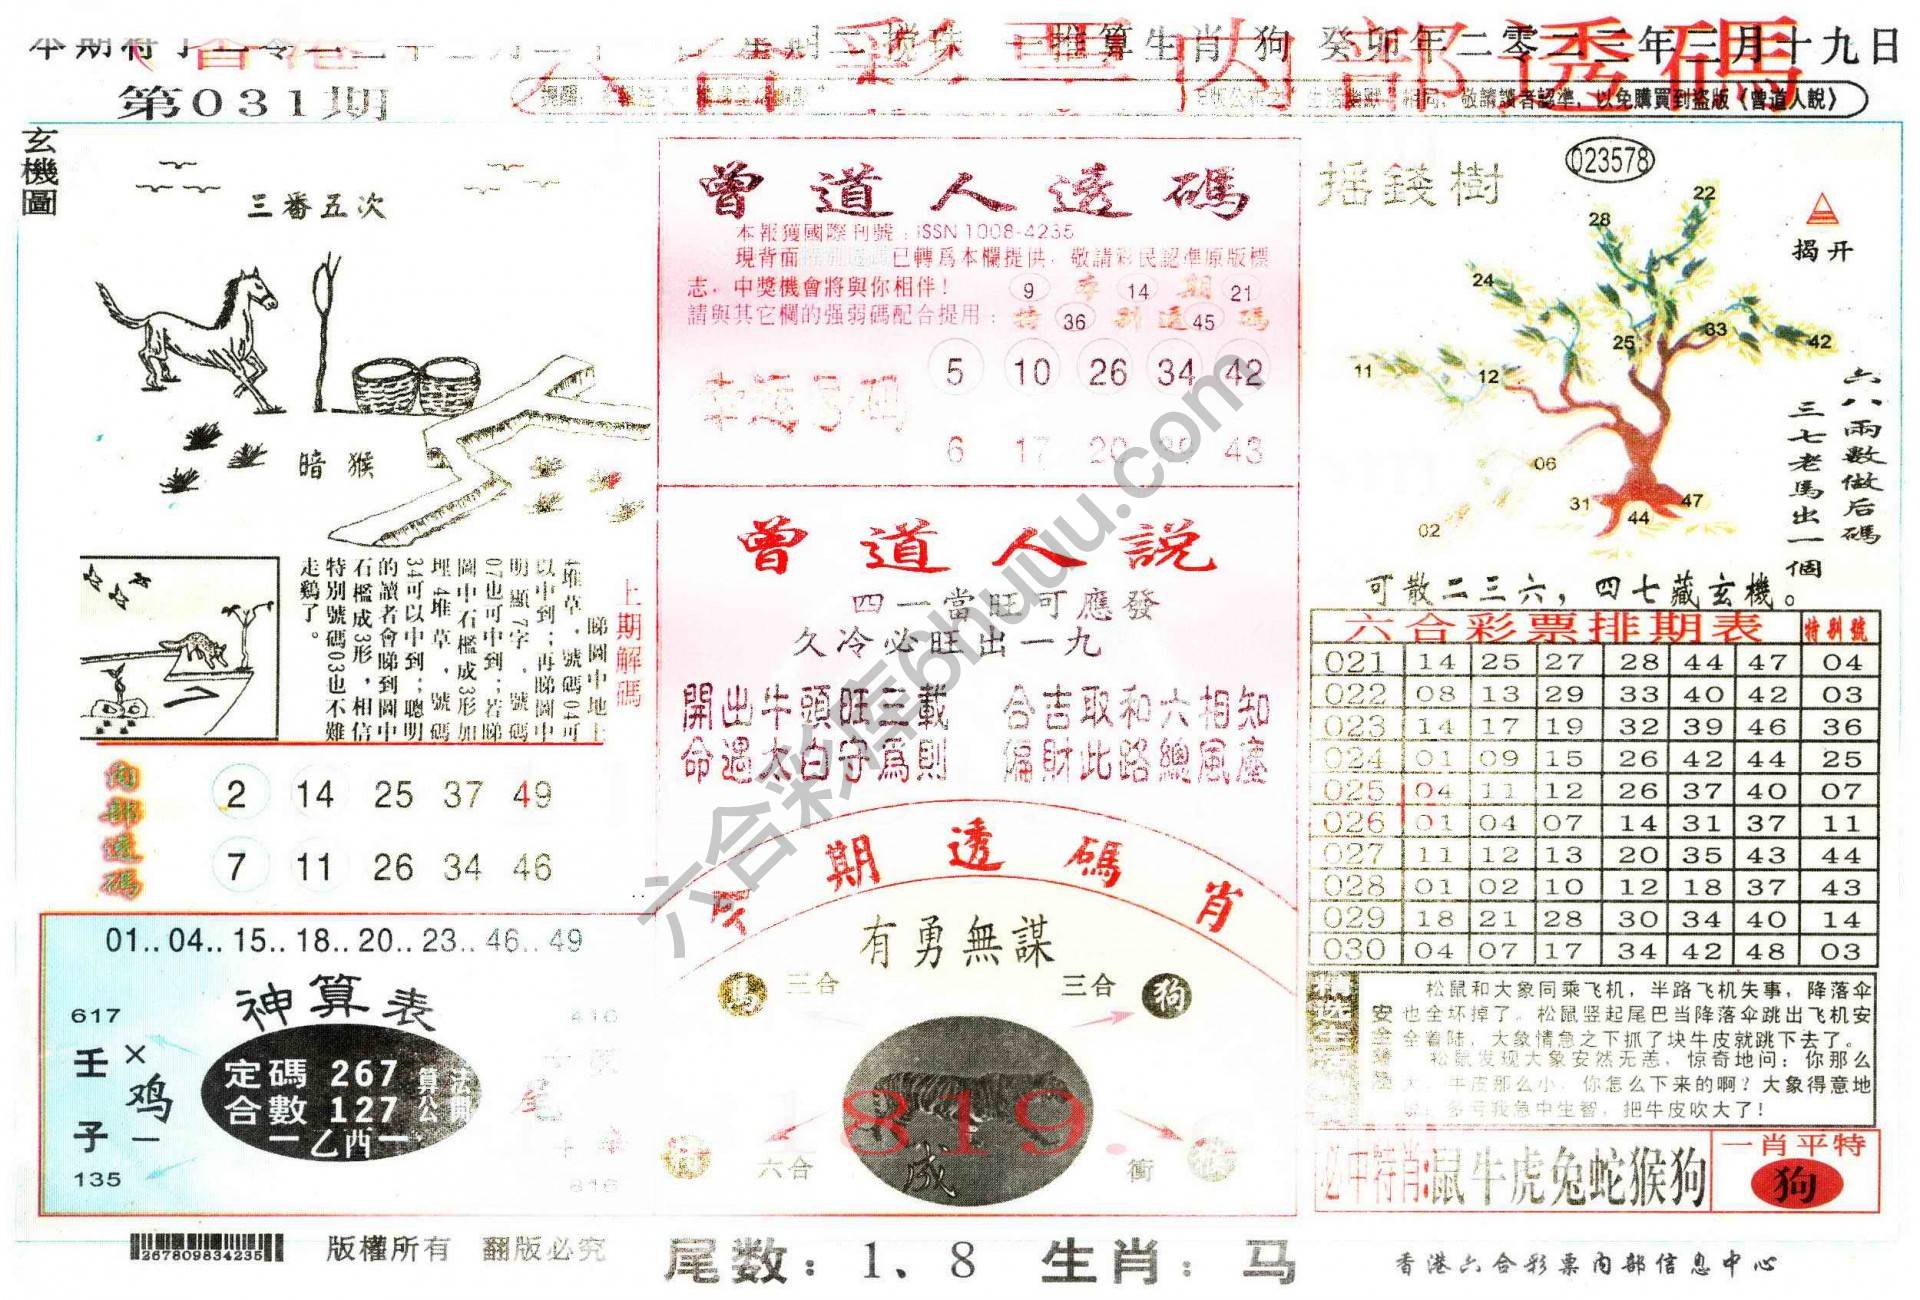 推算生肖 狗 癸卯年二零二三年三月十九日
六合彩票内部透碼
第031期
敬請讀者認準，以免購買到盜版《曾道人說》
玄機圖
三番五次
暗猴
上期解碼
睇圖中地上
4堆草，號碼04可
以中到；再睇圖中
明顯7字，號碼
07也可中到；若睇
圖中石檻成3形如
埋4堆草，號碼
34可以中到；聰明
的讀者會睇到圖中
石檻成3形，相信
特別號碼03也不難
走鷄了。
内部透碼
2 14 25 37 49
7 11 26 34 46
01..04..15..18..20..23..46..49
神算表
617
壬子
×
鸡
一
135
定碼 267
合數 127
一乙酉一
算公
416
尾
816
曾道人透碼
本報獲國際刊號：ISSN 1008-4235
現背面特別透碼已轉爲本欄提供，敬請彩民認準原版標
志，中獎機會將與你相伴！
請與其它欄的强弱碼配合提用：
本期
特別透碼
9 14 21
36 45
幸运号码
5 10 26 34 42
6 17 20 39 43
曾道人説
四一當旺可應發
久冷必旺出一九
開出牛頭旺三載 合吉取和六相知
命遇太白守爲則 偏財此路總風塵
今期透碼肖
有勇無謀
馬 三合
三合 狗
六合
衝
1819.
摇錢樹
023578
揭开
22
28
24
33
25
42
11
12
06
31
47
44
02
六八兩數做后碼
三七老馬出一個
可散二三六，四七藏玄機。
六合彩票排期表 特别號
021 14 25 27 28 44 47 04
022 08 13 29 33 40 42 03
023 14 17 19 32 39 46 36
024 01 09 15 26 42 44 25
025 04 11 12 26 37 40 07
026 01 04 07 14 31 37 11
027 11 12 13 20 35 43 44
028 01 02 10 12 18 37 43
029 18 21 28 30 34 40 14
030 04 07 17 34 42 48 03
松鼠和大象同乘飞机，半路飞机失事，降落伞
也全坏掉了。松鼠竖起尾巴当降落伞跳出飞机安
全着陆，大象情急之下抓了块牛皮就跳下去了。
松鼠发现大象安然无恙，惊奇地问：你那么
大，牛皮那么小，你怎么下来的啊？大象得意地
说：多亏我急中生智，把牛皮吹大了！
必中特肖:鼠牛虎兔蛇猴狗
一肖平特
狗
267809834235
版權所有 翻版必究
尾数：1、8 生肖：马
香港六合彩票内部信息中心
六合彩库6huuu.com